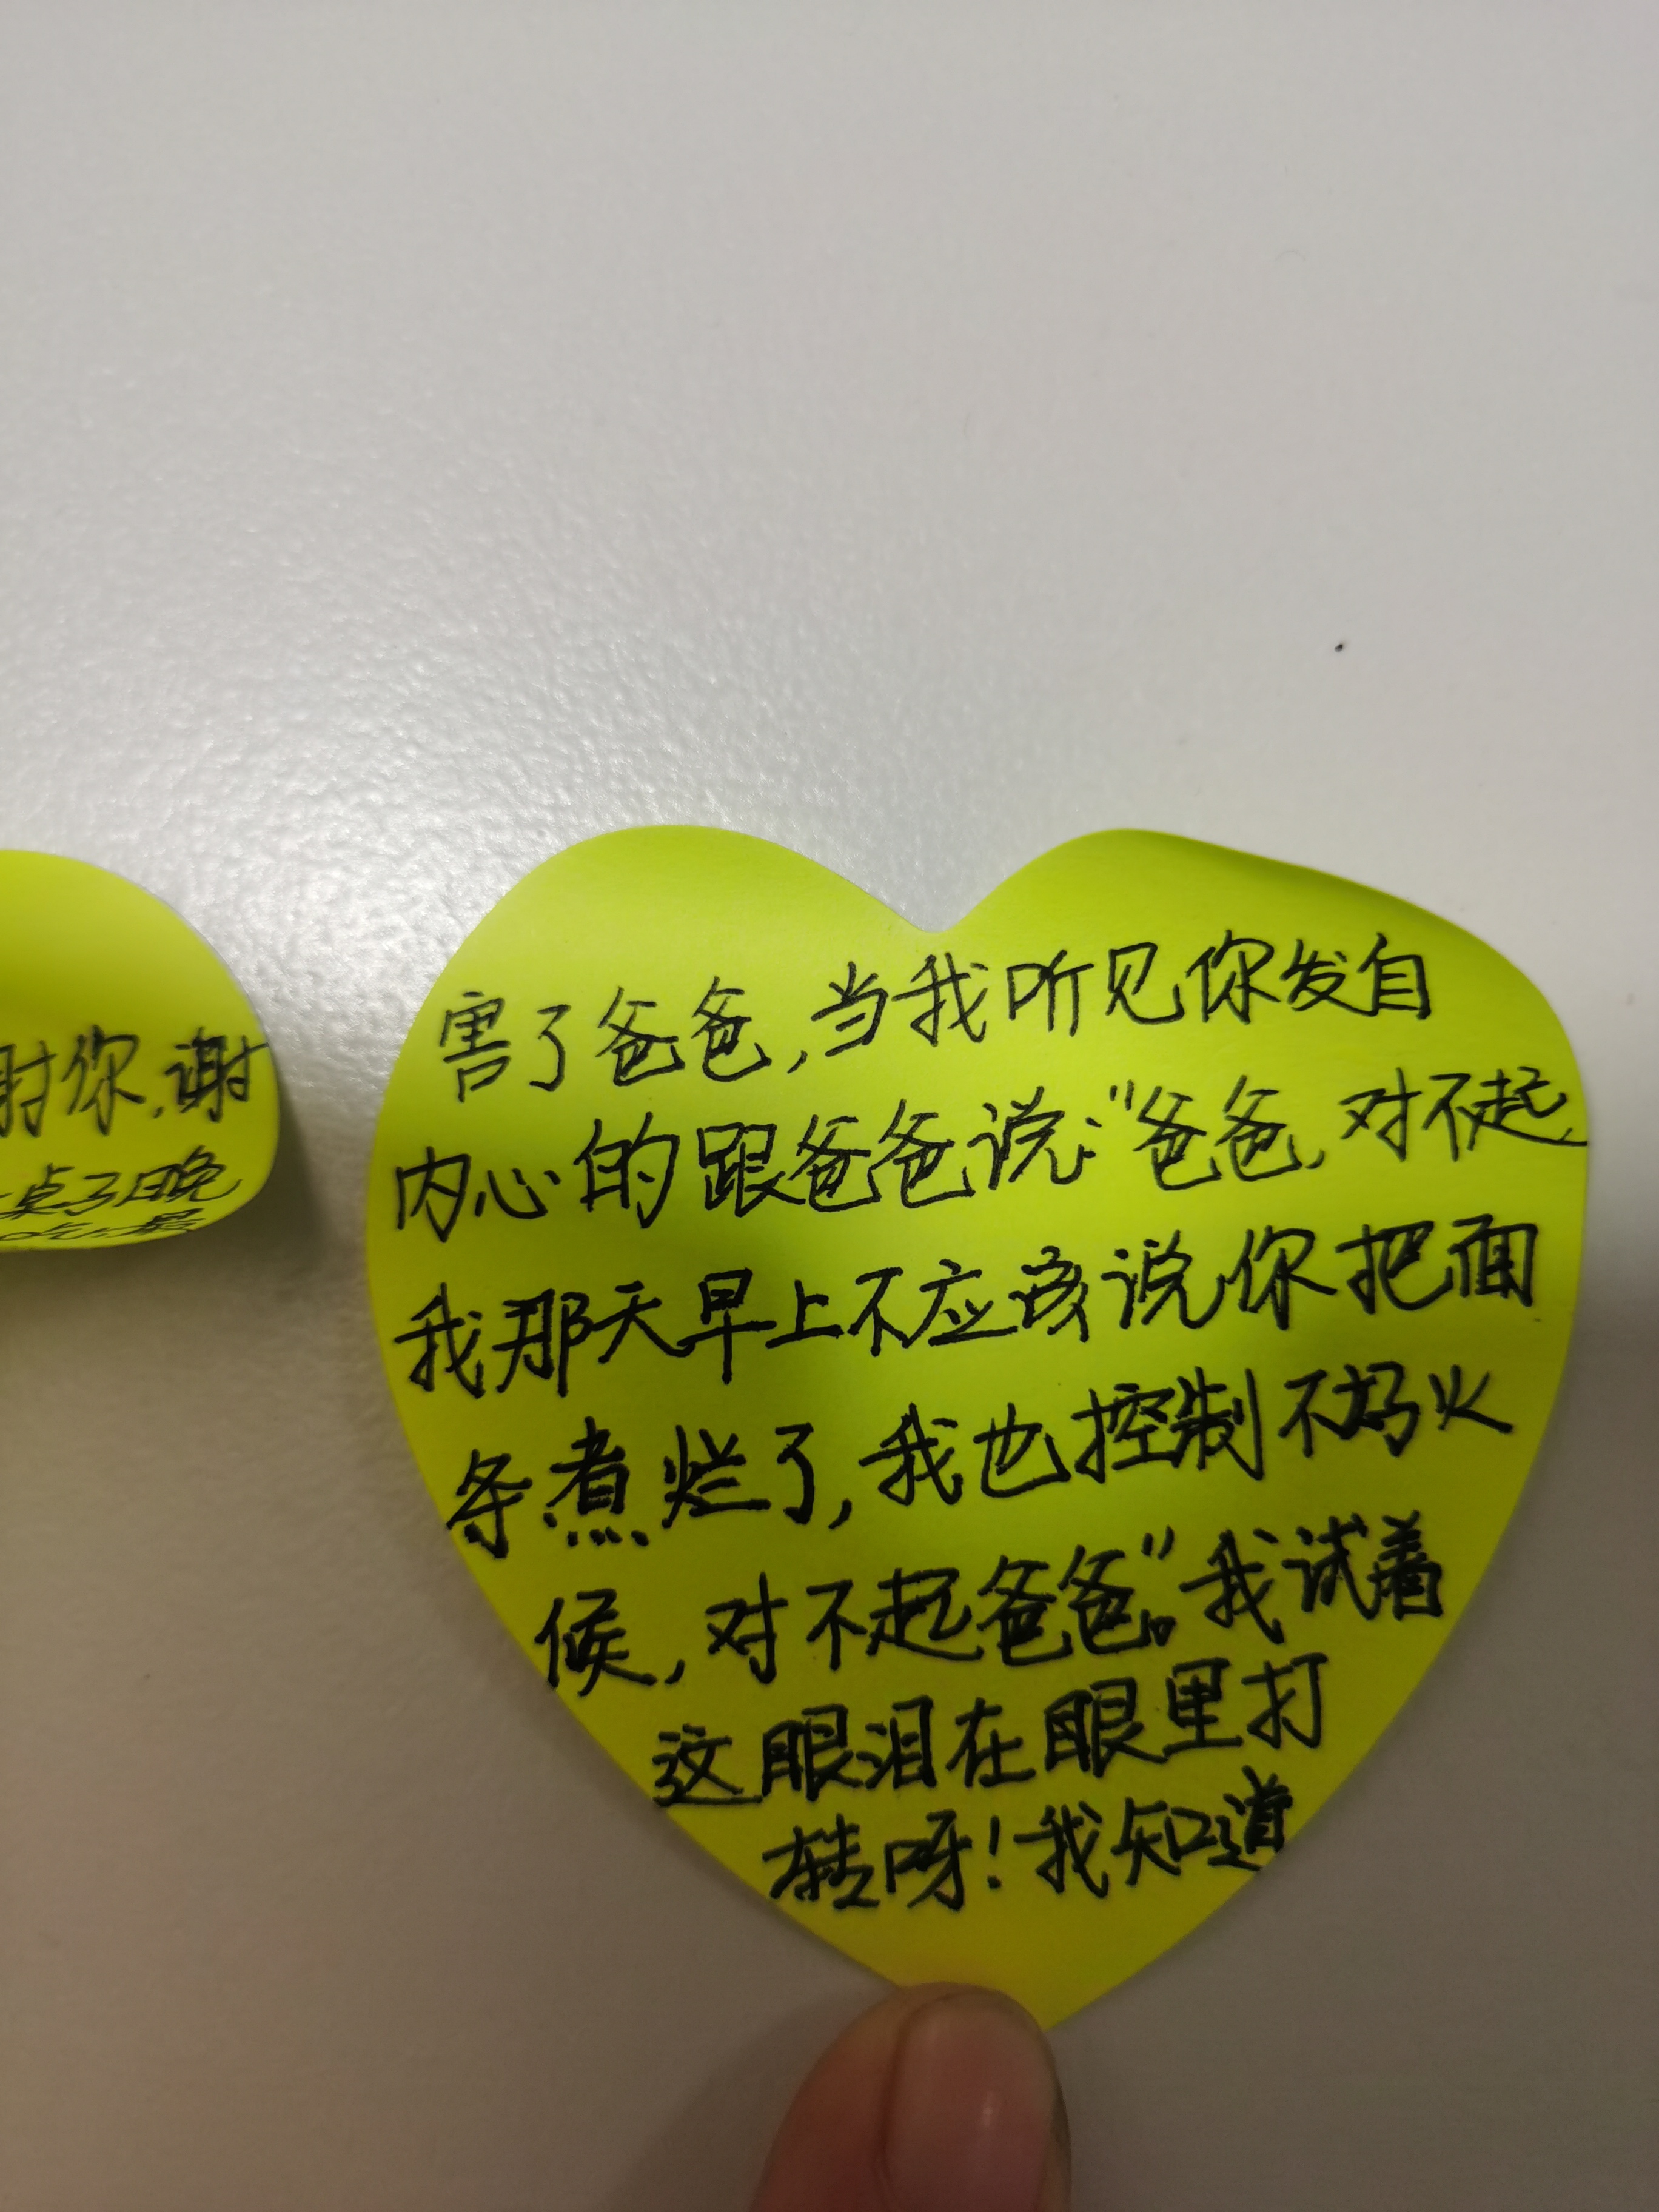 害了爸爸,当我听见你发自
内心的跟爸爸说:"爸爸,对不起,
我那天早上不应该说你把面
条煮烂了,我也控制不好火
候,对不起爸爸。"我试着
这眼泪在眼里打
转呀!我知道
射你,谢
桌了晚